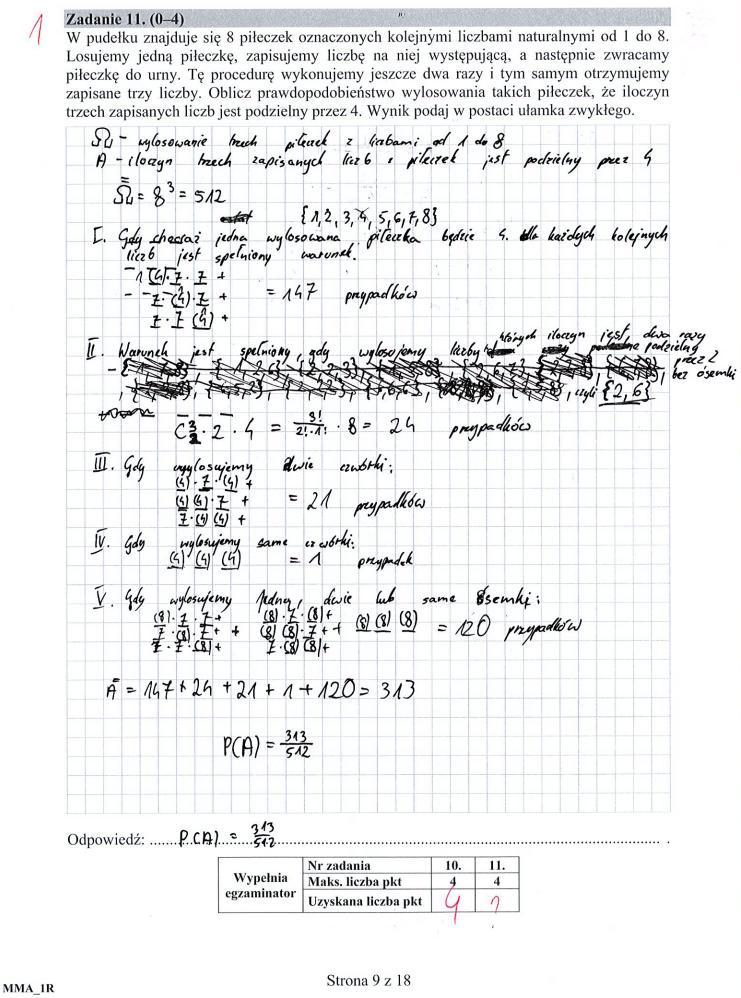 1
Zadanie 11. (0–4)
W pudełku znajduje się 8 piłeczek oznaczonych kolejnymi liczbami naturalnymi od 1 do 8.
Losujemy jedną piłeczkę, zapisujemy liczbę na niej występującą, a następnie zwracamy
piłeczkę do urny. Tę procedurę wykonujemy jeszcze dwa razy i tym samym otrzymujemy
zapisane trzy liczby. Oblicz prawdopodobieństwo wylosowania takich piłeczek, że iloczyn
trzech zapisanych liczb jest podzielny przez 4. Wynik podaj w postaci ułamka zwykłego.
Ω – wylosowanie trzech piłeczek z liczbami od 1 do 8
A – iloczyn trzech zapisanych liczb z piłeczek jest podzielny przez 4
Ω̿ = 8³ = 512
{1, 2, 3, 4, 5, 6, 7, 8}
I. Gdy chociaż jedna wylosowana piłeczka będzie 4. dla każdych kolejnych
liczb jest spełniony warunek.
1 (4) · 7 · 7 +
7 · (4) · 7 + = 147 przypadków
7 · 7 (4) +
II. Warunek jest spełniony, gdy wylosujemy liczby których iloczyn jest dwa razy
podzielny
przez 2
bez ósemki
, czyli {2, 6}
C³₂ · 2 · 4 = 3!/2!·1! · 8 = 24 przypadków
III. Gdy wylosujemy dwie czwórki:
(4) · 7 · (4) +
(4) (4) · 7 + = 21 przypadków
7 · (4) (4) +
IV. Gdy wylosujemy same czwórki:
(4) (4) (4) = 1 przypadek
V. Gdy wylosujemy jedną, dwie lub same ósemki:
(8) · 7 · 7 + (8) · 7 · (8) +
7 · (8) · 7 + + (8) (8) · 7 + + (8) (8) (8) = 120 przypadków
7 · 7 · (8) + 7 · (8) (8) +
A̿ = 147 + 24 + 21 + 1 + 120 = 313
P(A) = 313/512
Odpowiedź: P(A) = 313/512
Wypełnia egzaminator
Nr zadania 10. 11.
Maks. liczba pkt 4 4
Uzyskana liczba pkt 4 1
Strona 9 z 18
MMA_1R